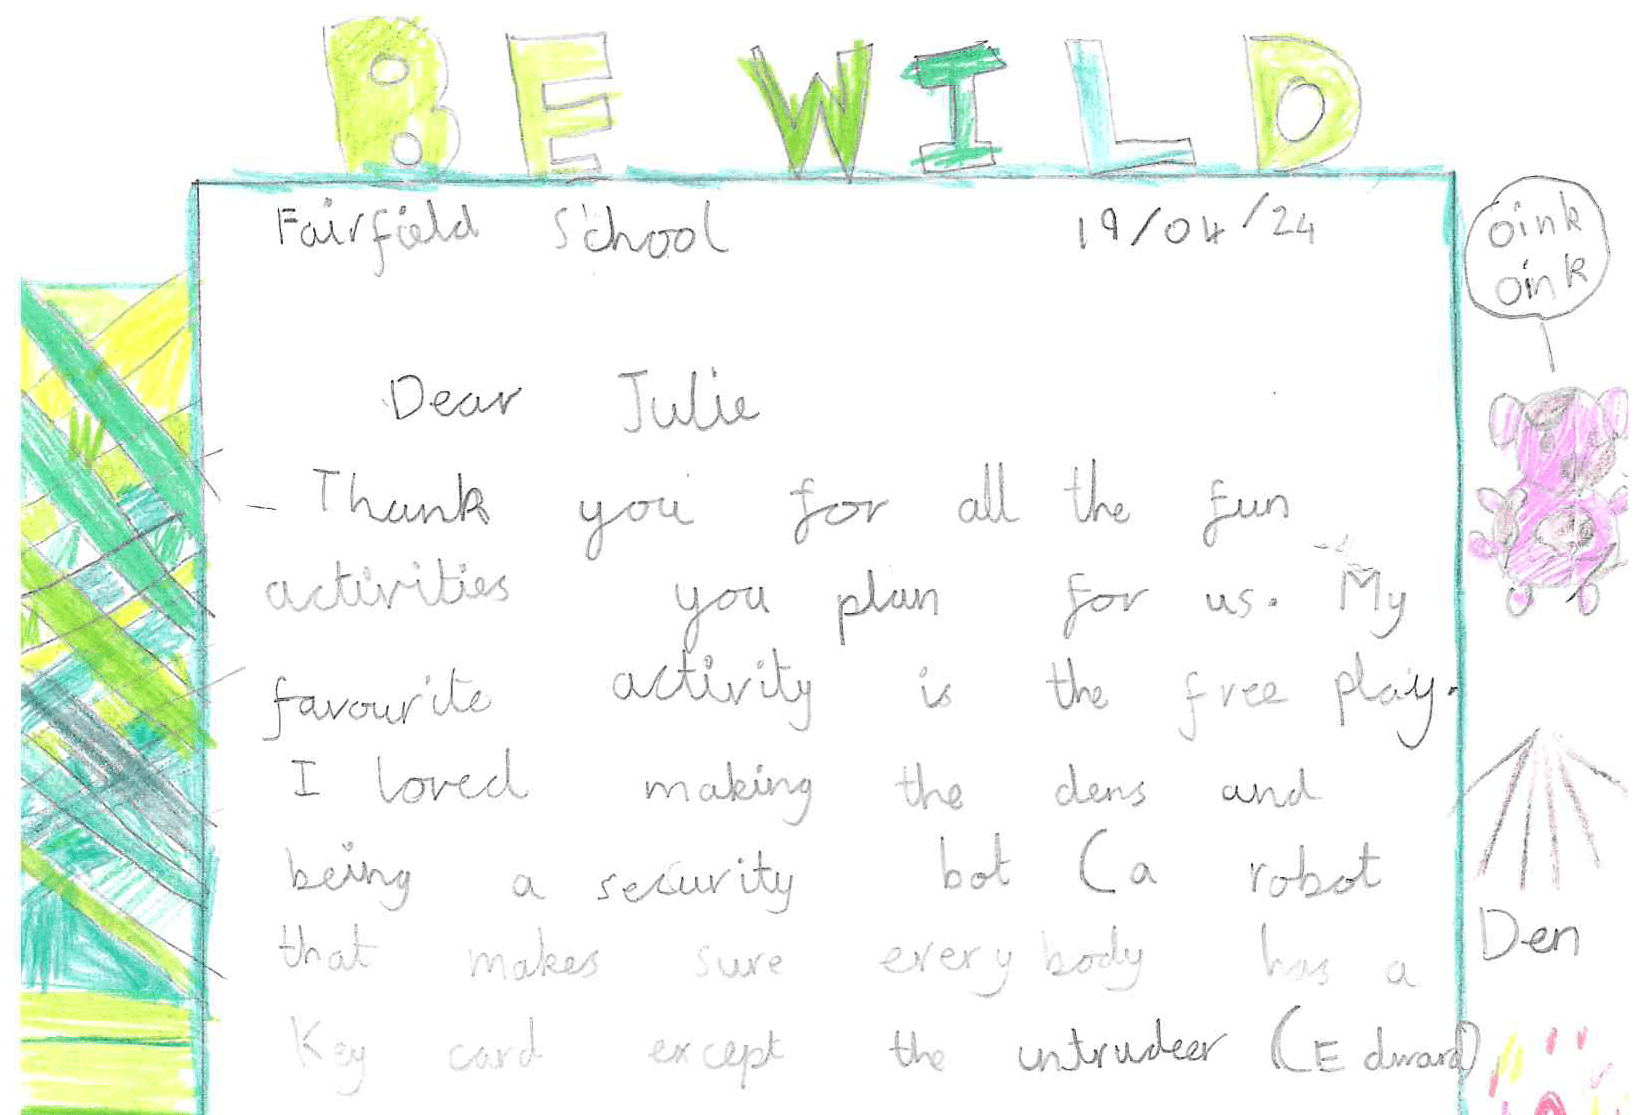 BE WILD
Fairfield School 19/04/24
oink
oink
Dear Julie
- Thank you for all the fun
activities you plan for us. My
favourite activity is the free play.
I loved making the dens and
being a security bot (a robot
that makes sure everybody has a
Den
Key card except the untrudeer (Edward)